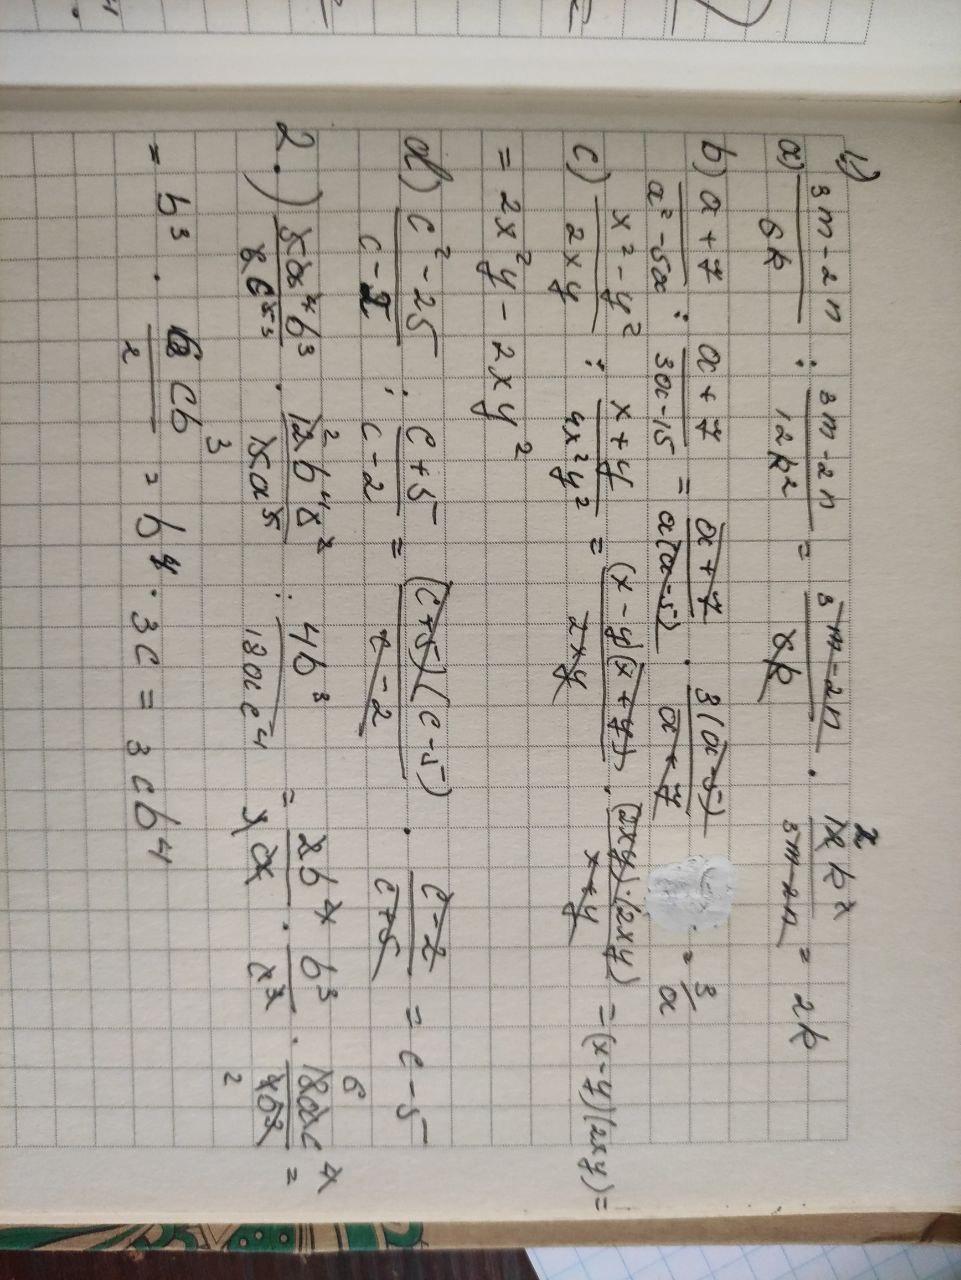 1.)
a) 3m-2n/6k : 3m-2n/12k² = 3m-2n/6k · 12k²/3m-2n = 2k
b) a+7/a²-5a : a+7/3a-15 = a+7/a(a-5) · 3(a-5)/a+7 = 3/a
c) x²-y²/2xy : x+y/4x²y² = (x-y)(x+y)/2xy · (2xy)·(2xy)/x+y = (x-y)(2xy) =
= 2x²y - 2xy²
d) c²-25/c-2 : c+5/c-2 = (c+5)(c-5)/c-2 · c-2/c+5 = c-5
2.) 5a⁴b³/ · 12b⁴/15a⁵ : 4b³/18ac⁴ = 2b⁴/a · b³/ · 18ac⁴/ =
= b³ · 6cb/2 = b⁴ · 3c = 3cb⁴